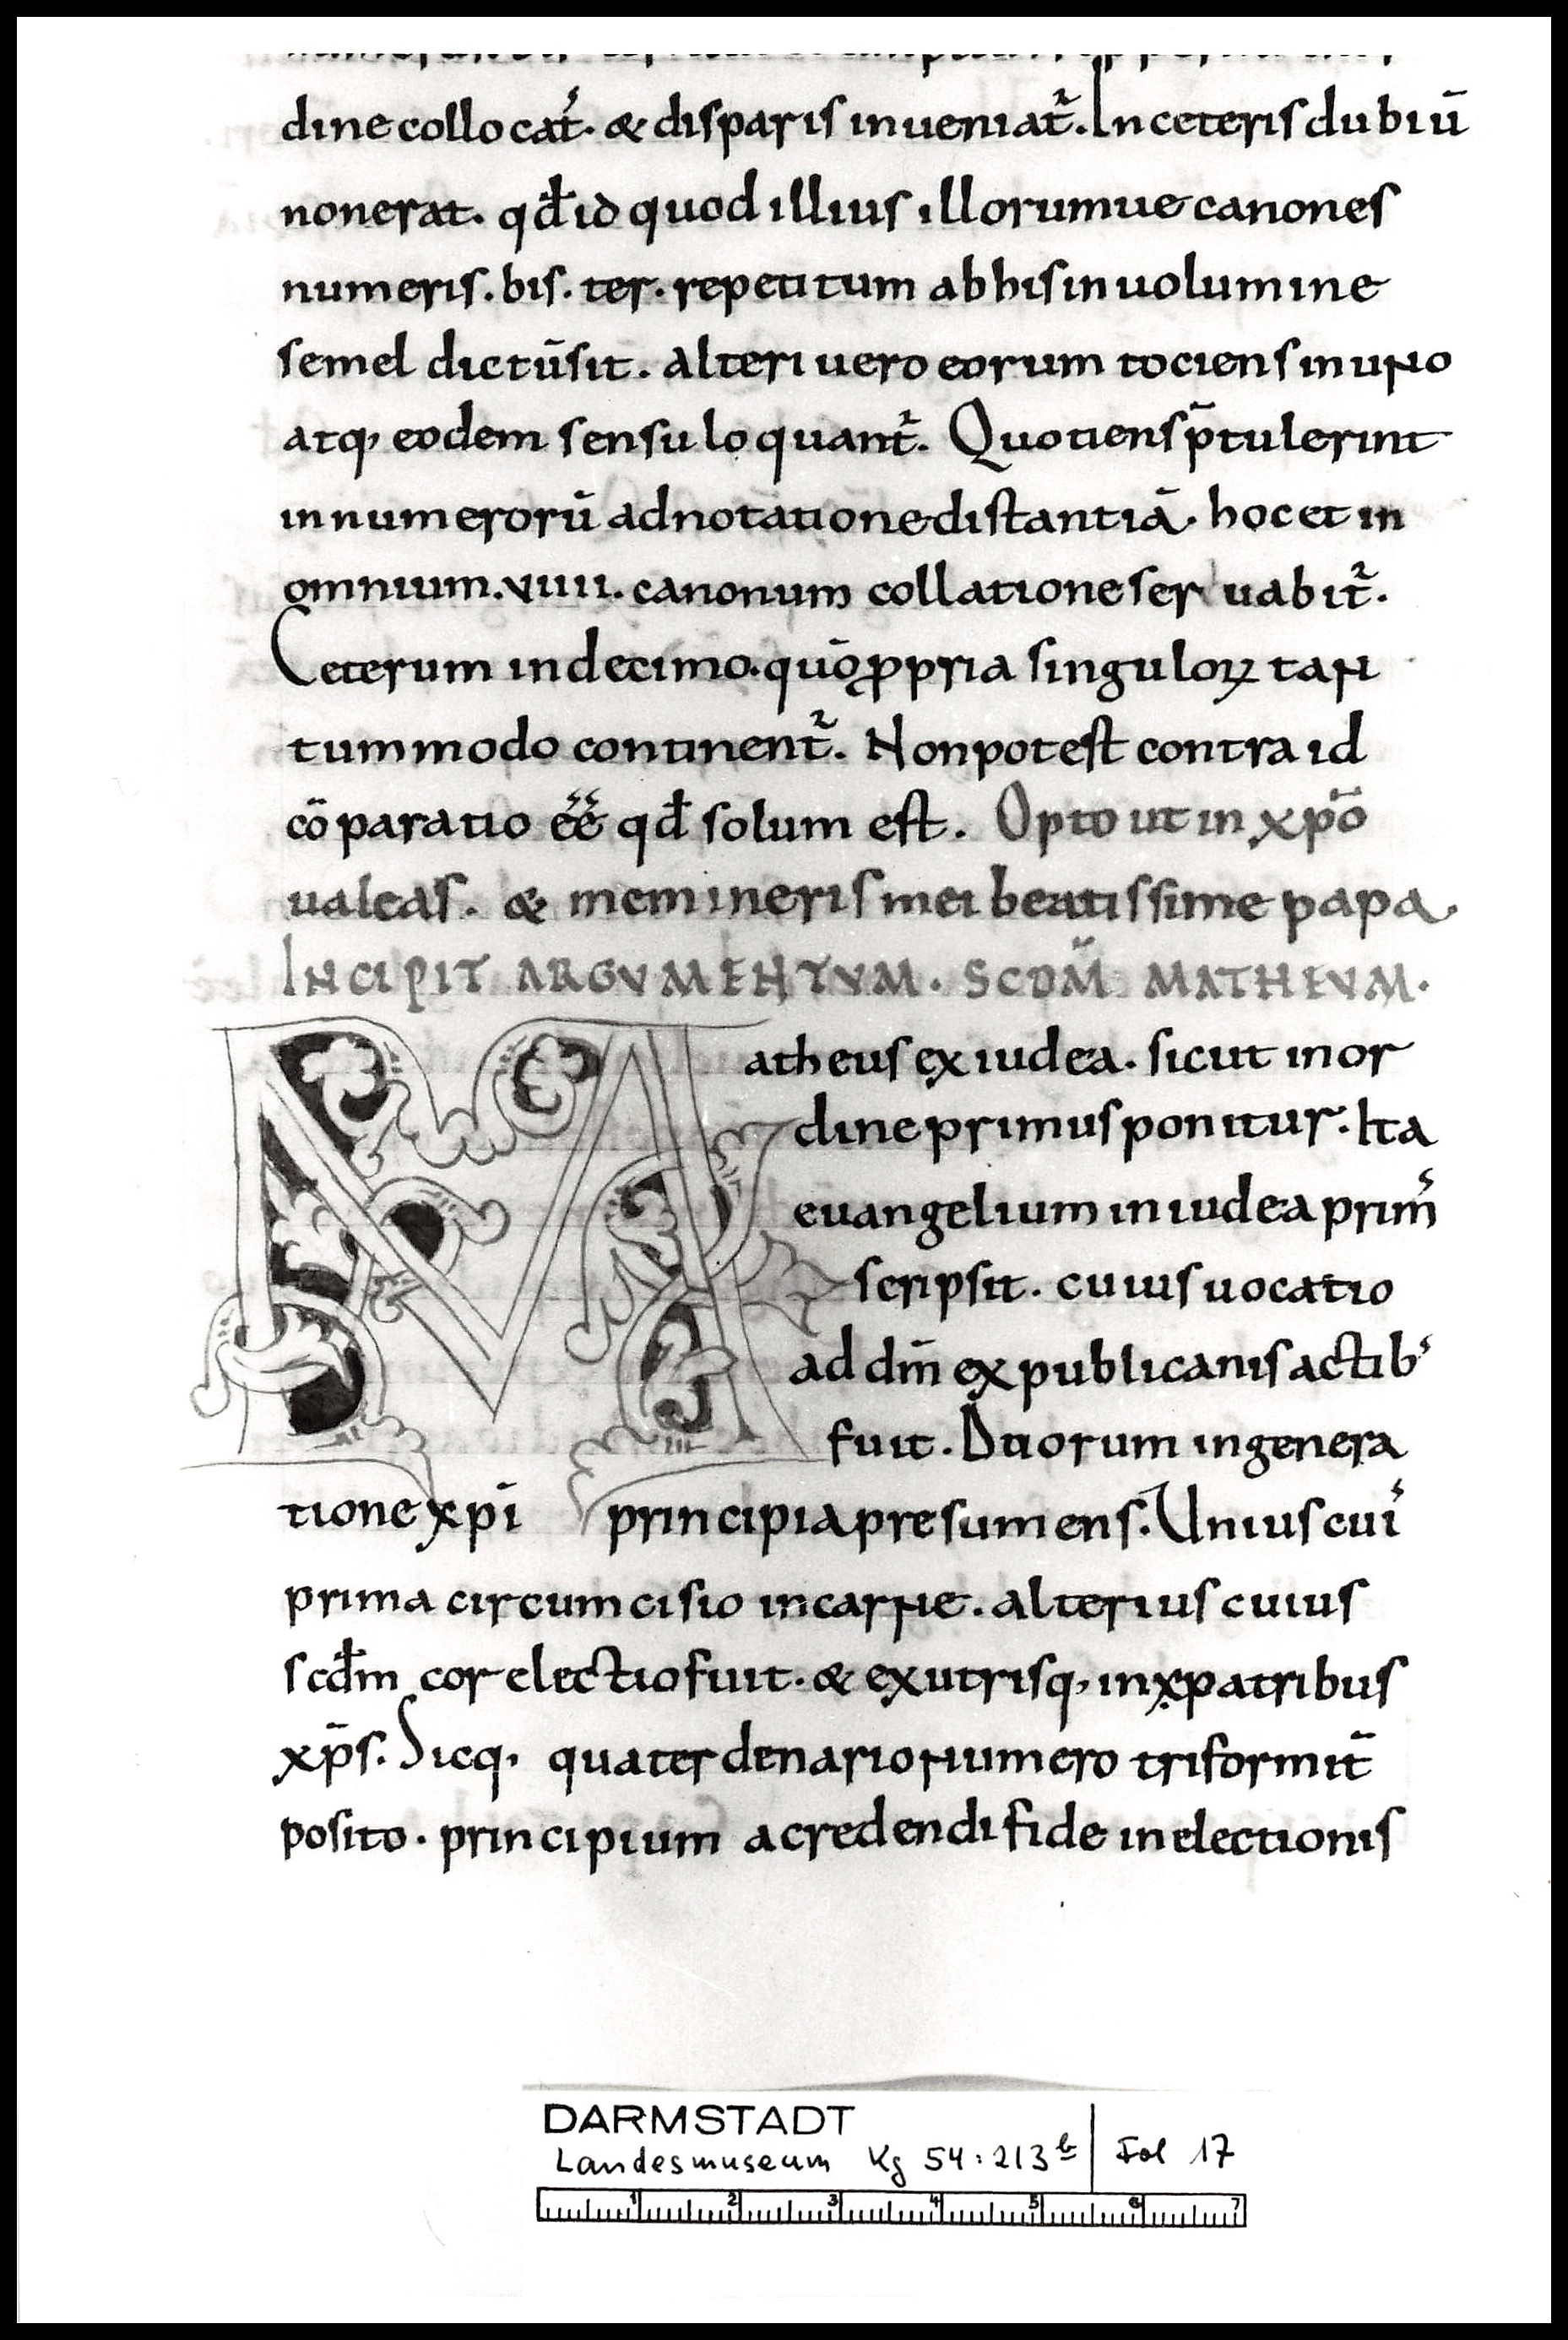 dine collocat̾. & disparis inueniat̾. In ceteris dubiū
non erat. qđ id quod illius illorumue canones
numeris. bis. ter. repetitum ab his in uolumine
semel dictū sit. alteri uero eorum tociens in uno
atq, eodem sensu loquant̾. Quotiens p̄tulerint
in numerorū adnotatione distantiā. hoc et in
omnium. viiii. canonum collatione seruabit̾.
Ceterum in decimo. quō ꝓpria singuloꝝ tan
tummodo continent̾. Non potest contra id
cōparatio eé́ qđ solum est. Opto ut in xp̄o
ualeas. & memineris mei beatissime papa.
INCIPIT ARGVMENTVM. SCDM̄ MATHEVM.
Matheus ex iudea. sicut in or
dine primus ponitur: Ita
euangelium in iudea prim̾
scripsit. cuius uocatio
ad dm̄ ex publicanis actib'
fuit. Duorum in genera
tione xp̄i principia presumens. Unius cui̾
prima circumcisio in carne. alterius cuius
scđm cor electio fuit. & ex utrisq, in xpatribus
xp̄s. Sicq, quaterdenario numero triformit̄
posito. principium a credendi fide in electionis
DARMSTADT
Landesmuseum Kg 54:213b Fol 17
1 2 3 4 5 6 7